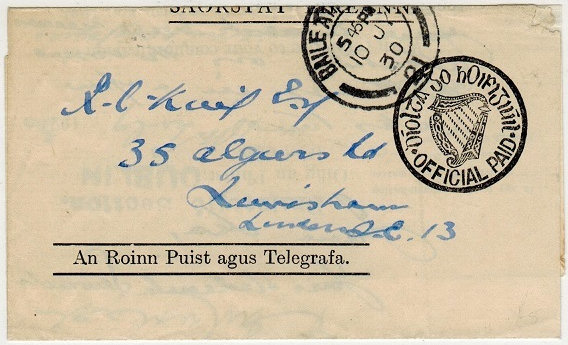 SAORSTÁT ÉIREANN
BAILE ÁT
5 45 PM
10 JA
30
21
Díolta go hOifigiúil
OFFICIAL PAID
Esq
35 Algiers Rd
Lewisham
London S.E. 13
An Roinn Puist agus Telegrafa.